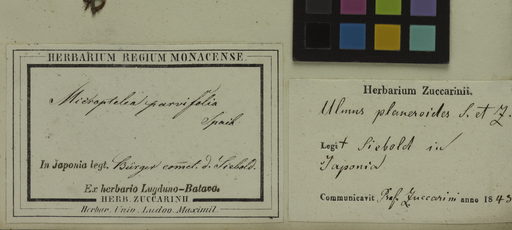 HERBARIUM REGIUM MONACENSE.
Microptelea parvifolia
Spach.
In Japonia legt. Bürger comct. d. Siebold.
Ex herbario Lugduno-Batavo.
HERB. ZUCCARINII
Herbar. Univ. Ludov. Maximil.
Herbarium Zuccarinii.
Ulmus planeroides S. et Z.
Legit Siebold in
Japonia
Communicavit Prof. Zuccarini anno 1843